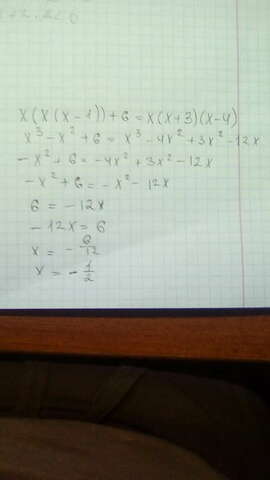 x(x(x-1))+6=x(x+3)(x-4)
x³-x²+6=x³-4x²+3x²-12x
-x²+6=-4x²+3x²-12x
-x²+6=-x²-12x
6=-12x
-12x=6
x=-6/12
x=-1/2